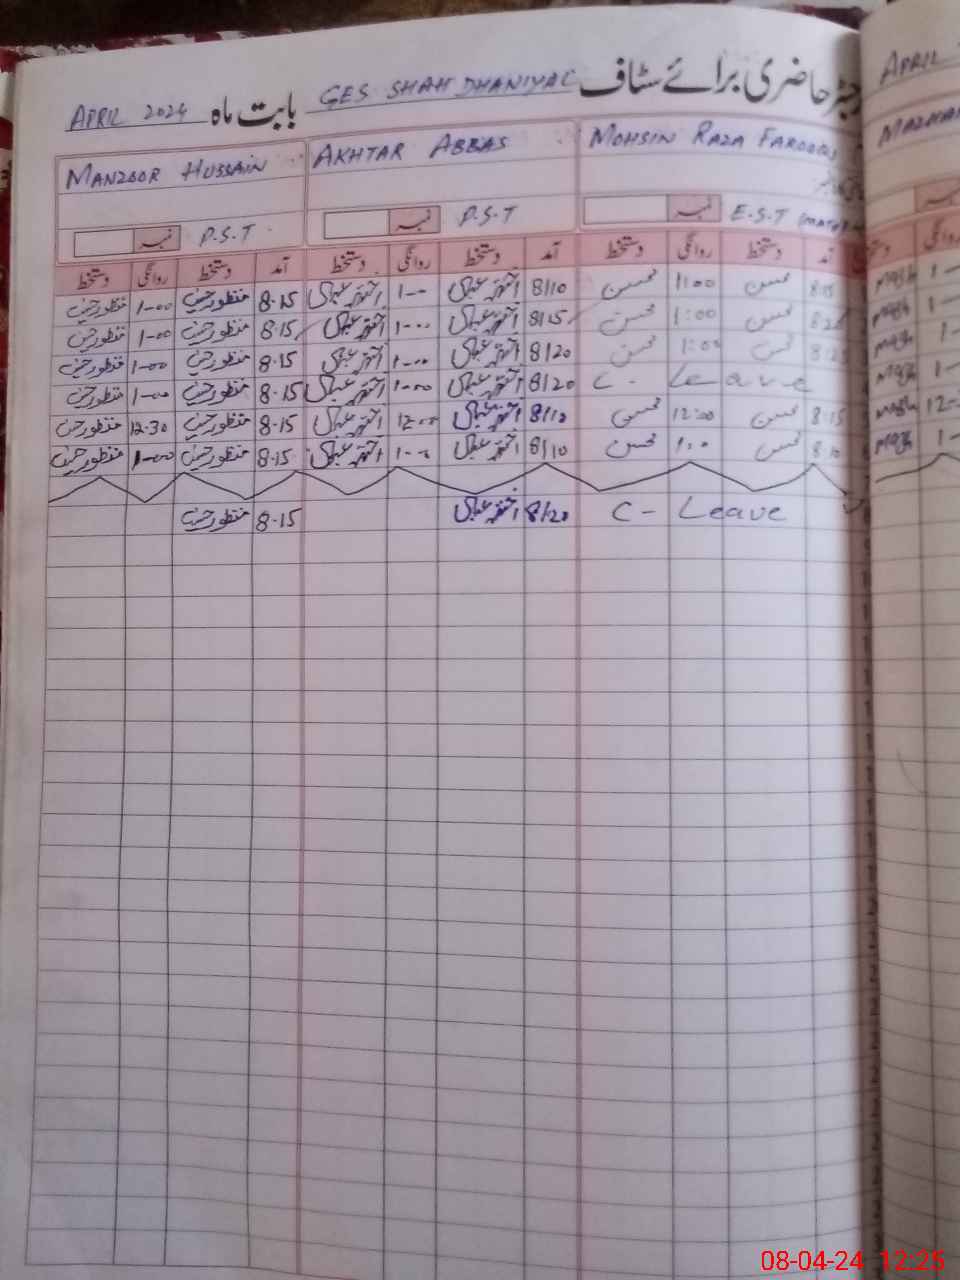 حاضری برائے سٹاف GES SHAH DHANIYAL بابت ماہ APRIL 2024
MOHSIN RAZA FAROOQI
AKHTAR ABBAS
MANZOOR HUSSAIN
E.S.T نمبر
P.S.T نمبر
P.S.T نمبر
آمد دستخط روانگی دستخط آمد دستخط روانگی دستخط آمد دستخط روانگی دستخط
محسن 1:00 محسن 8/10 اختر عباس 1-00 اختر عباس 8-15 منظور حسین 1-00 منظور حسین
محسن 1:00 محسن 8/15 اختر عباس 1-00 اختر عباس 8-15 منظور حسین 1-00 منظور حسین
محسن 1:00 محسن 8/20 اختر عباس 1-00 اختر عباس 8-15 منظور حسین 1-00 منظور حسین
C - Leave 8/20 اختر عباس 1-00 اختر عباس 8-15 منظور حسین 1-00 منظور حسین
8:15 محسن 12:00 محسن 8/10 اختر عباس 12-00 اختر عباس 8-15 منظور حسین 12-30 منظور حسین
8:10 محسن 1:0 محسن 8/10 اختر عباس 1-00 اختر عباس 8-15 منظور حسین 1-00 منظور حسین
C - Leave 8/20 اختر عباس 8-15 منظور حسین
APRIL
نمبر
روانگی
12-
08-04-24 12:25